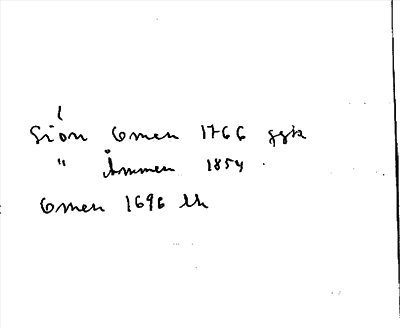 Siön Omen 1766 ggk
" Åmmen 1854
Omen 1696 lk